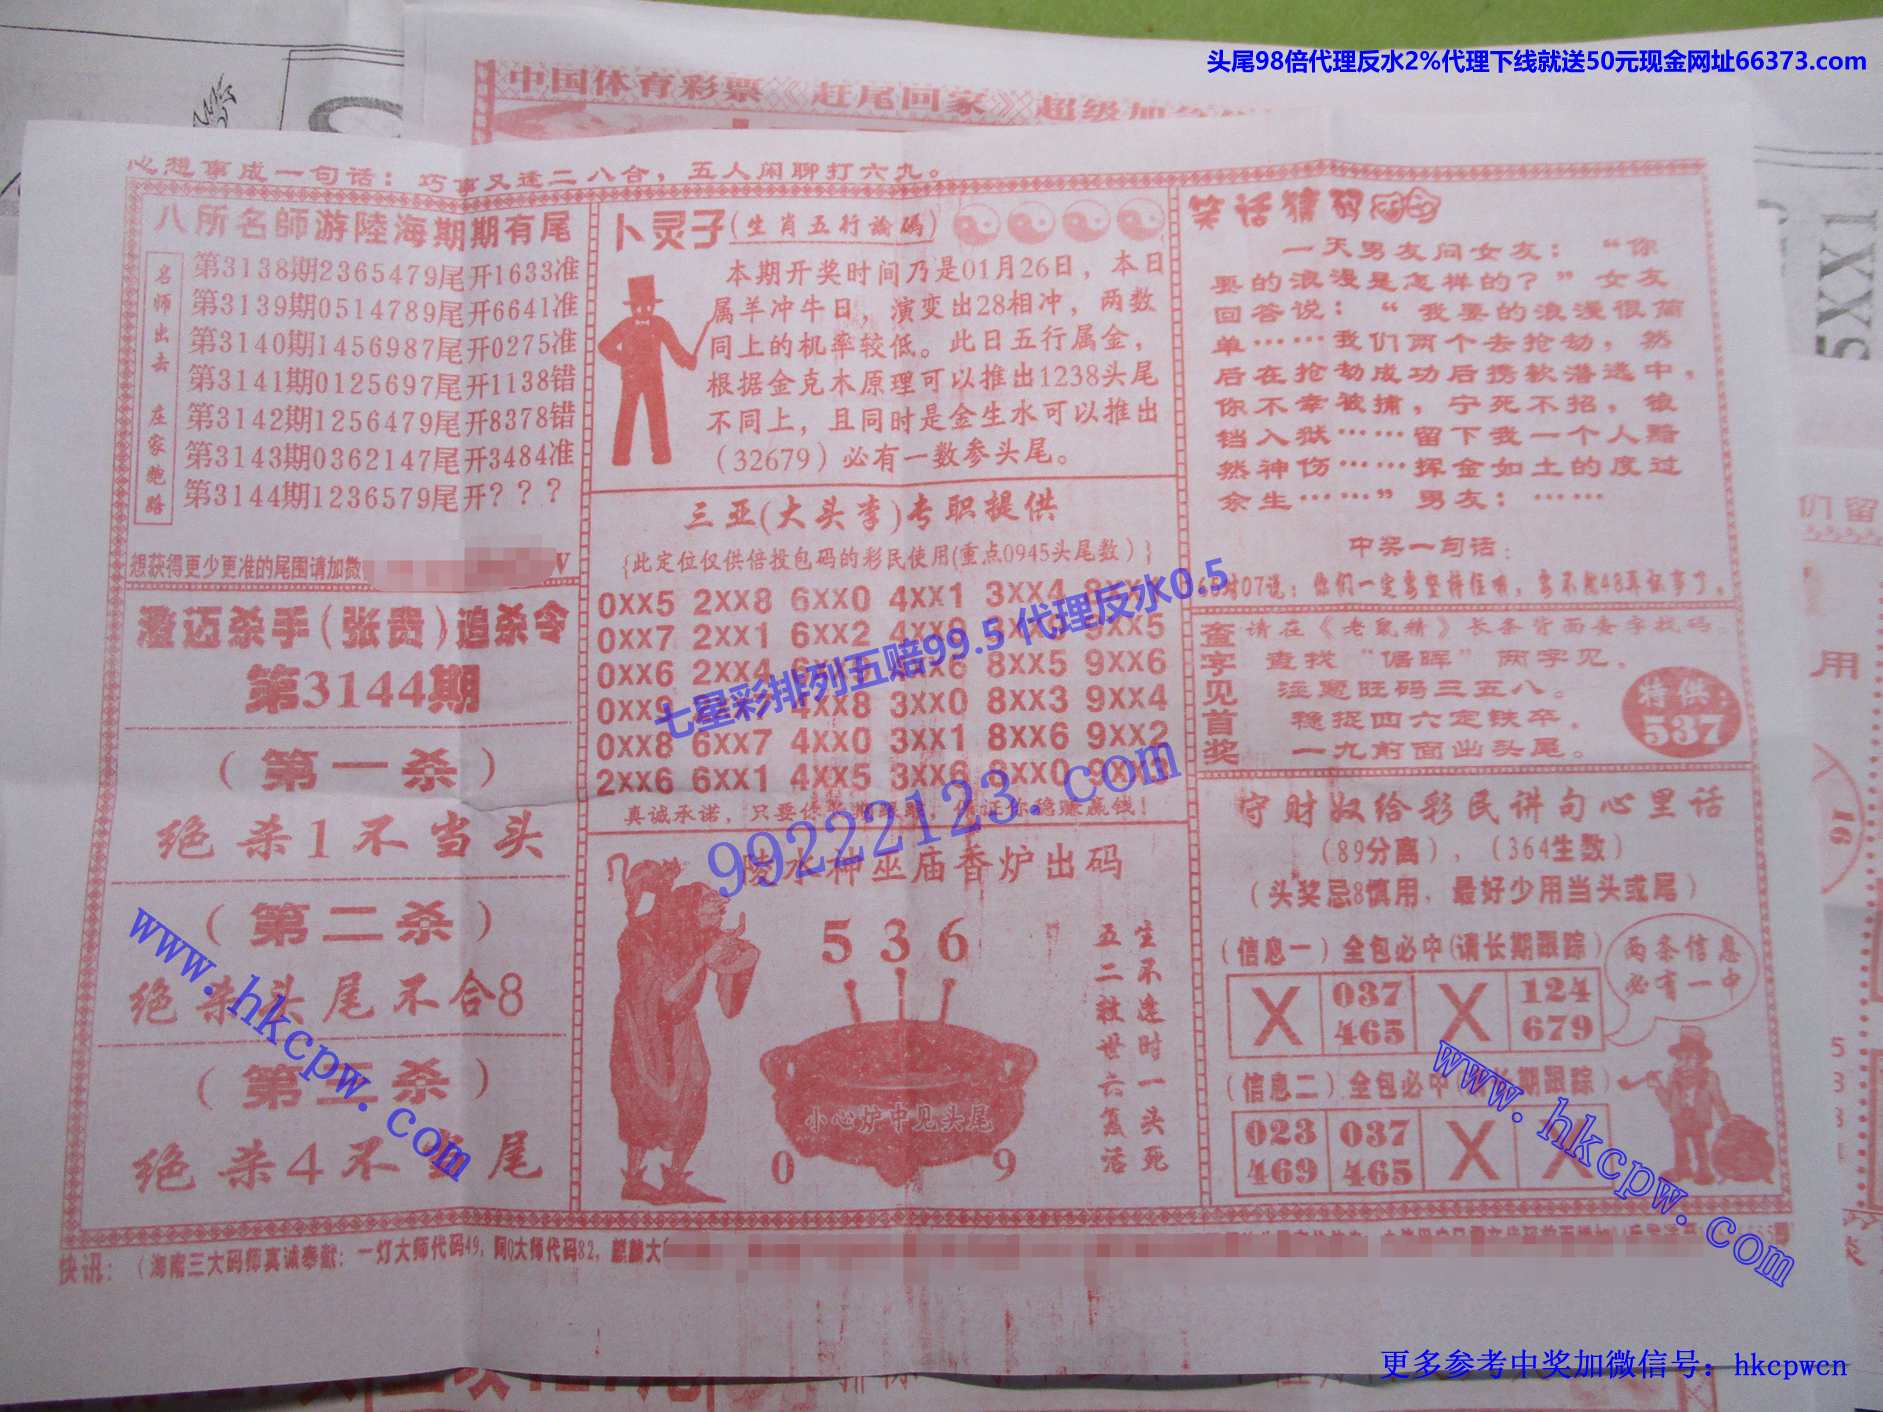 头尾98倍代理反水2%代理下线就送50元现金网址66373.com
中国体育彩票《赶尾回家》超级加
心想事成一句话：巧事又逢二八合，五人闲聊打六九。
八所名師游陸海期期有尾
名师出去 庄家跑路
第3138期2365479尾开1633准
第3139期0514789尾开6641准
第3140期1456987尾开0275准
第3141期0125697尾开1138错
第3142期1256479尾开8378错
第3143期0362147尾开3484准
第3144期1236579尾开？？？
想获得更少更准的尾围请加微
澄迈杀手(张贵)追杀令
第3144期
（第一杀）
绝杀1不当头
（第二杀）
绝杀头尾不合8
（第三杀）
绝杀4不当尾
卜灵子(生肖五行論碼)
本期开奖时间乃是01月26日，本日
属羊冲牛日，演变出28相冲，两数
同上的机率较低。此日五行属金，
根据金克木原理可以推出1238头尾
不同上，且同时是金生水可以推出
（32679）必有一数参头尾。
三亚(大头李)专职提供
{此定位仅供倍投包码的彩民使用(重点0945头尾数）}
0XX5 2XX8 6XX0 4XX1 3XX4
0XX7 2XX1 6XX2 9XX5
0XX6 2XX4 8XX5 9XX6
4XX8 3XX0 8XX3 9XX4
0XX8 6XX7 4XX0 3XX1 8XX6 9XX2
2XX6 6XX1 4XX5 3XX6 8XX0
真诚承诺，只要你 证你稳赚赢钱！
七星彩排列五赔99.5 代理反水0.5
99222123.com
陵水神巫庙香炉出码
5 3 6
生不逢时一头死
五二救世六复活
小心炉中见头尾
0 9
笑话猜码
一天男友问女友：“你
要的浪漫是怎样的？”女友
回答说：“我要的浪漫很简
单……我们两个去抢劫，然
后在抢劫成功后携款潜逃中，
你不幸被捕，宁死不招，锒
铛入狱……留下我一个人黯
然神伤……挥金如土的度过
余生……”男友：……
中奖一句话：
对07说：你们一定要坚持住哦，要不然48再
查字见首奖
请在《老鼠精》长条背面查字找码。
查找“倡晖”两字见，
注意旺码三五八。
稳捉四六定铁卒，
一九前面出头尾。
特供：
537
守财奴给彩民讲句心里话
（89分离），（364生数）
（头奖忌8慎用，最好少用当头或尾）
（信息一）全包必中(请长期跟踪）
X 037 465 X 124 679
两条信息必有一中
（信息二）全包必中 长期跟踪）
023 469 037 465 X X
快讯：（海南三大码师真诚奉献：一灯大师代码49，阿Q大师代码82，麒麟大
www.hkcpw.com
www.hkcpw.com
更多参考中奖加微信号：hkcpwcn
5XX1
们留
用
16